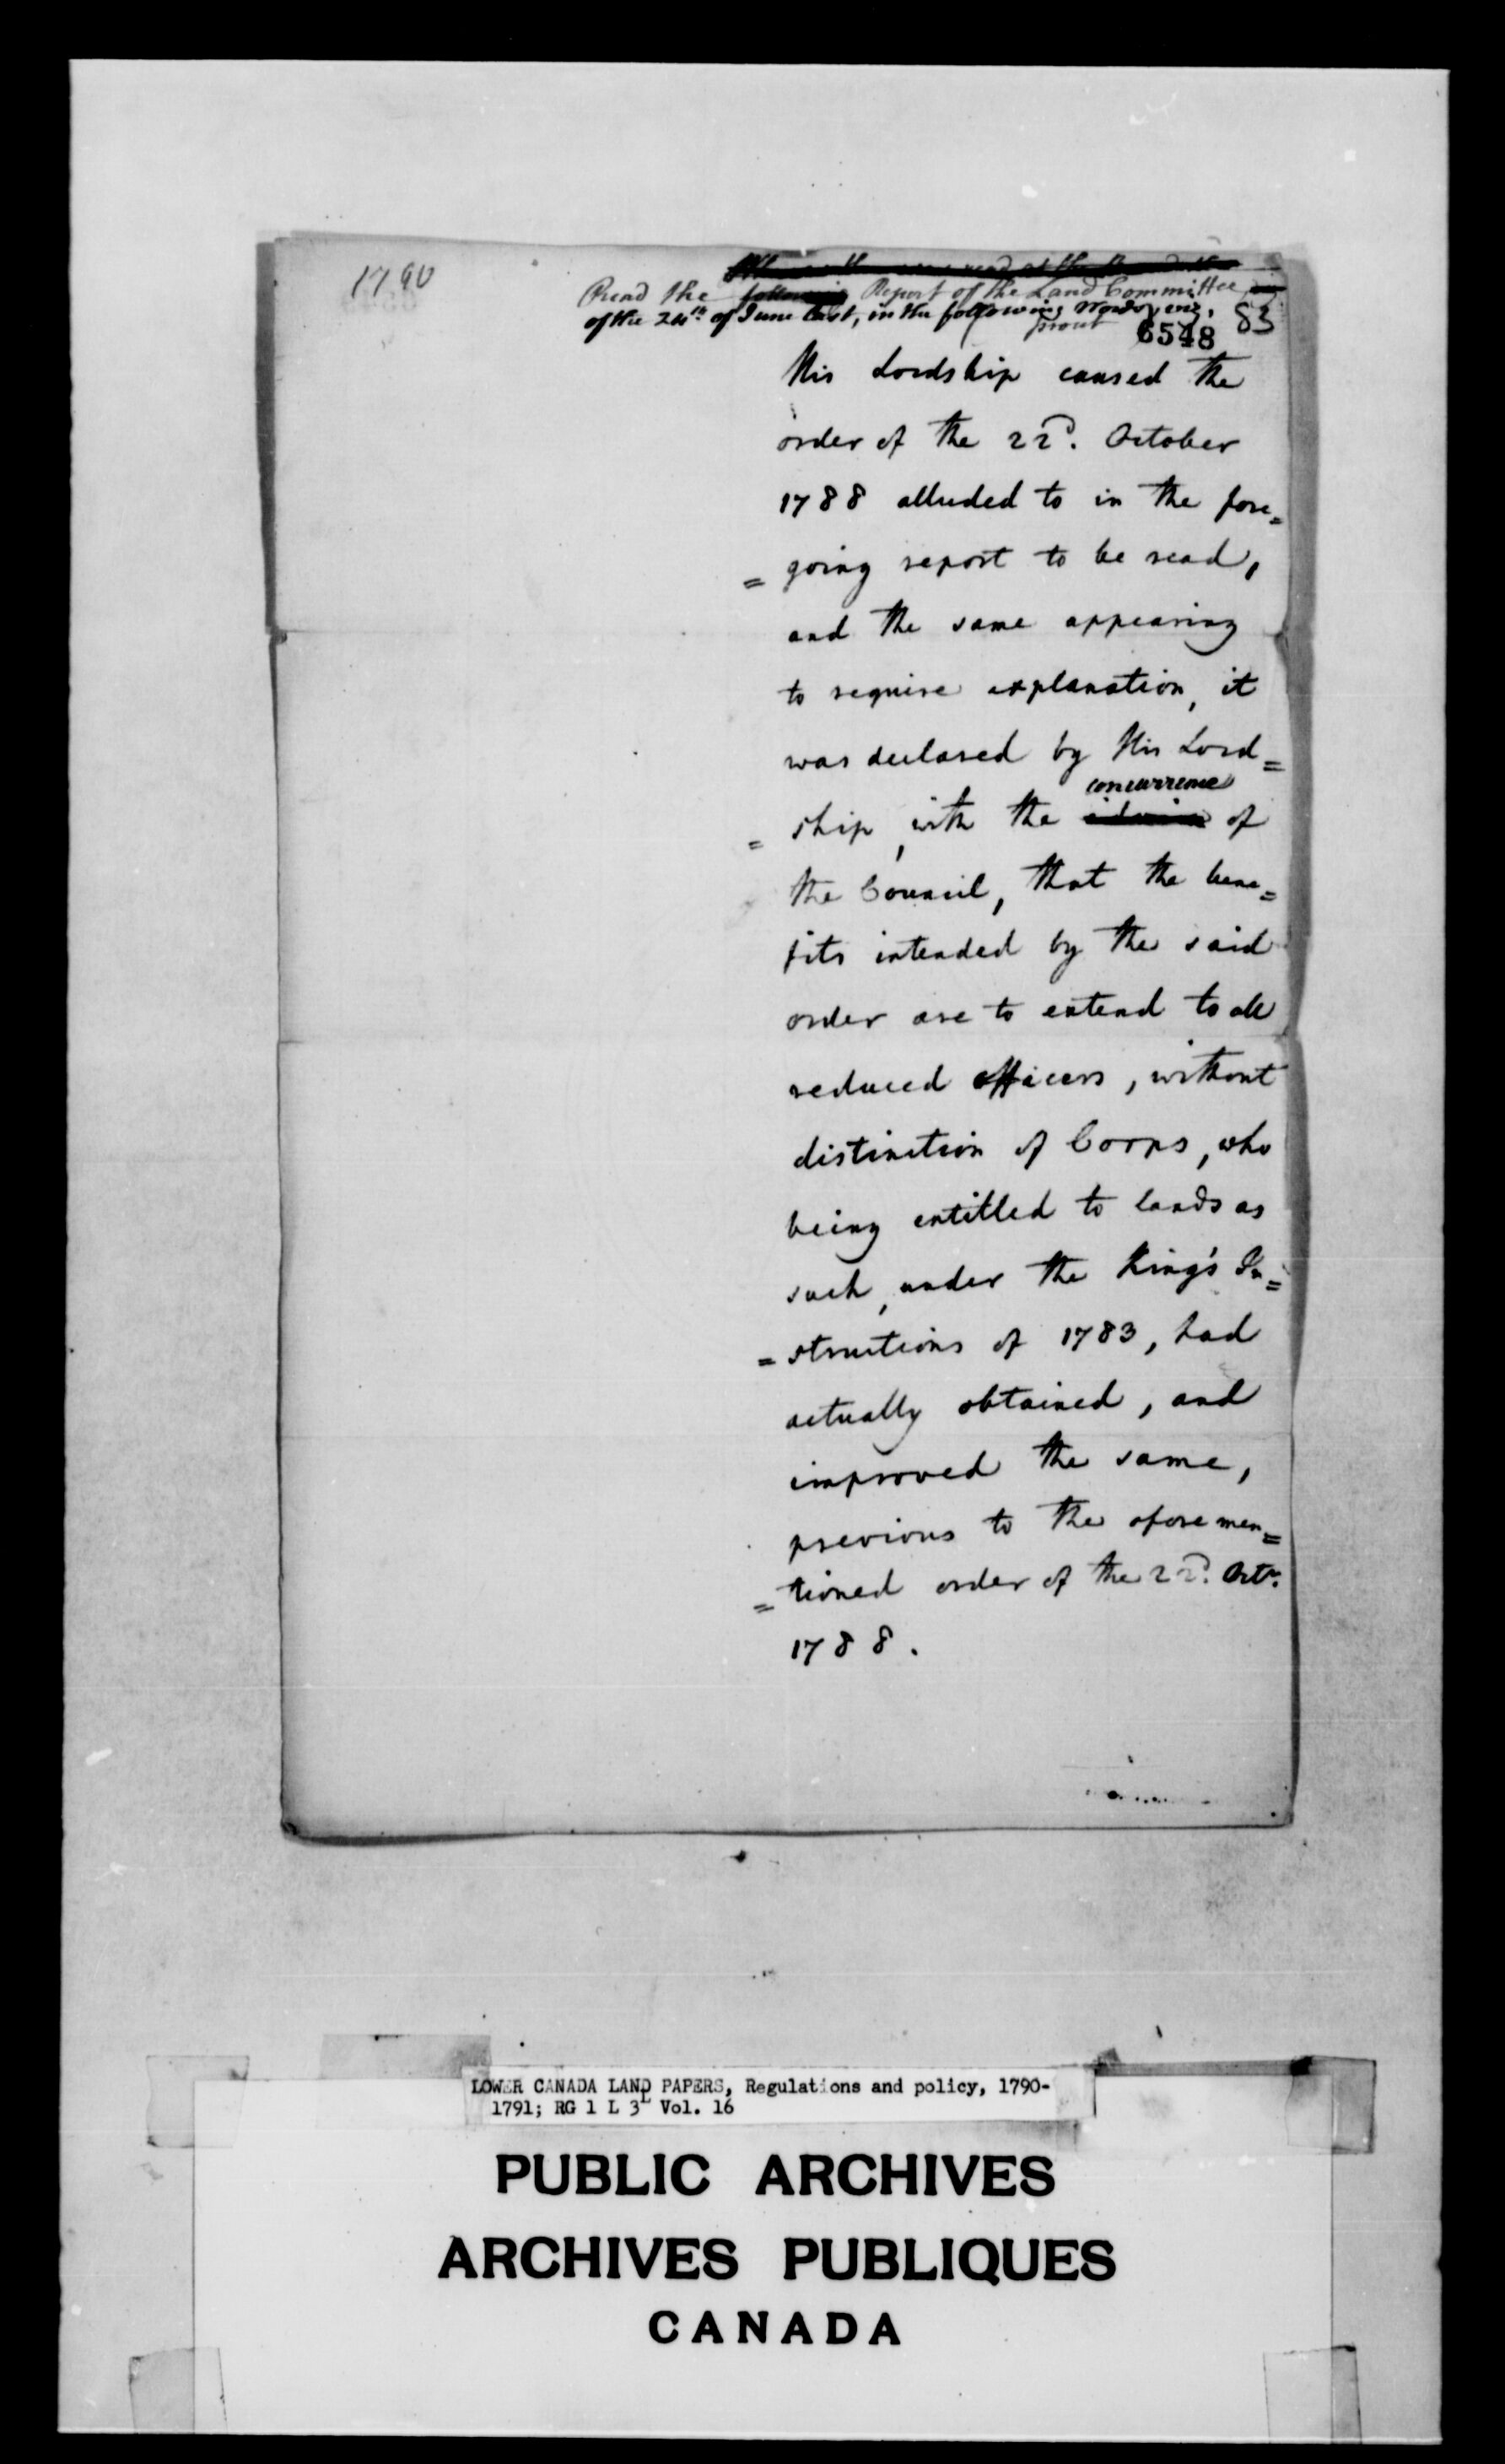 1790
Read the following Report of the Land Committee
of the 24th of June last, in the following words, viz,
prout 6548 83
His Lordship caused the
order of the 22d. October
1788 alluded to in the fore=
=going report to be read,
and the same appearing
to require explanation, it
was declared by His Lord=
concurrence
=ship, with the of
the Council, that the bene=
fits intended by the said
order are to extend to all
reduced officers, without
distinction of Corps, who
being entitled to lands as
such, under the King's In=
=structions of 1783, had
actually obtained, and
improved the same,
previous to the aforemen=
=tioned order of the 22d. Octr.
1788.
LOWER CANADA LAND PAPERS, Regulations and policy, 1790-
1791; RG 1 L 3L Vol. 16
PUBLIC ARCHIVES
ARCHIVES PUBLIQUES
CANADA